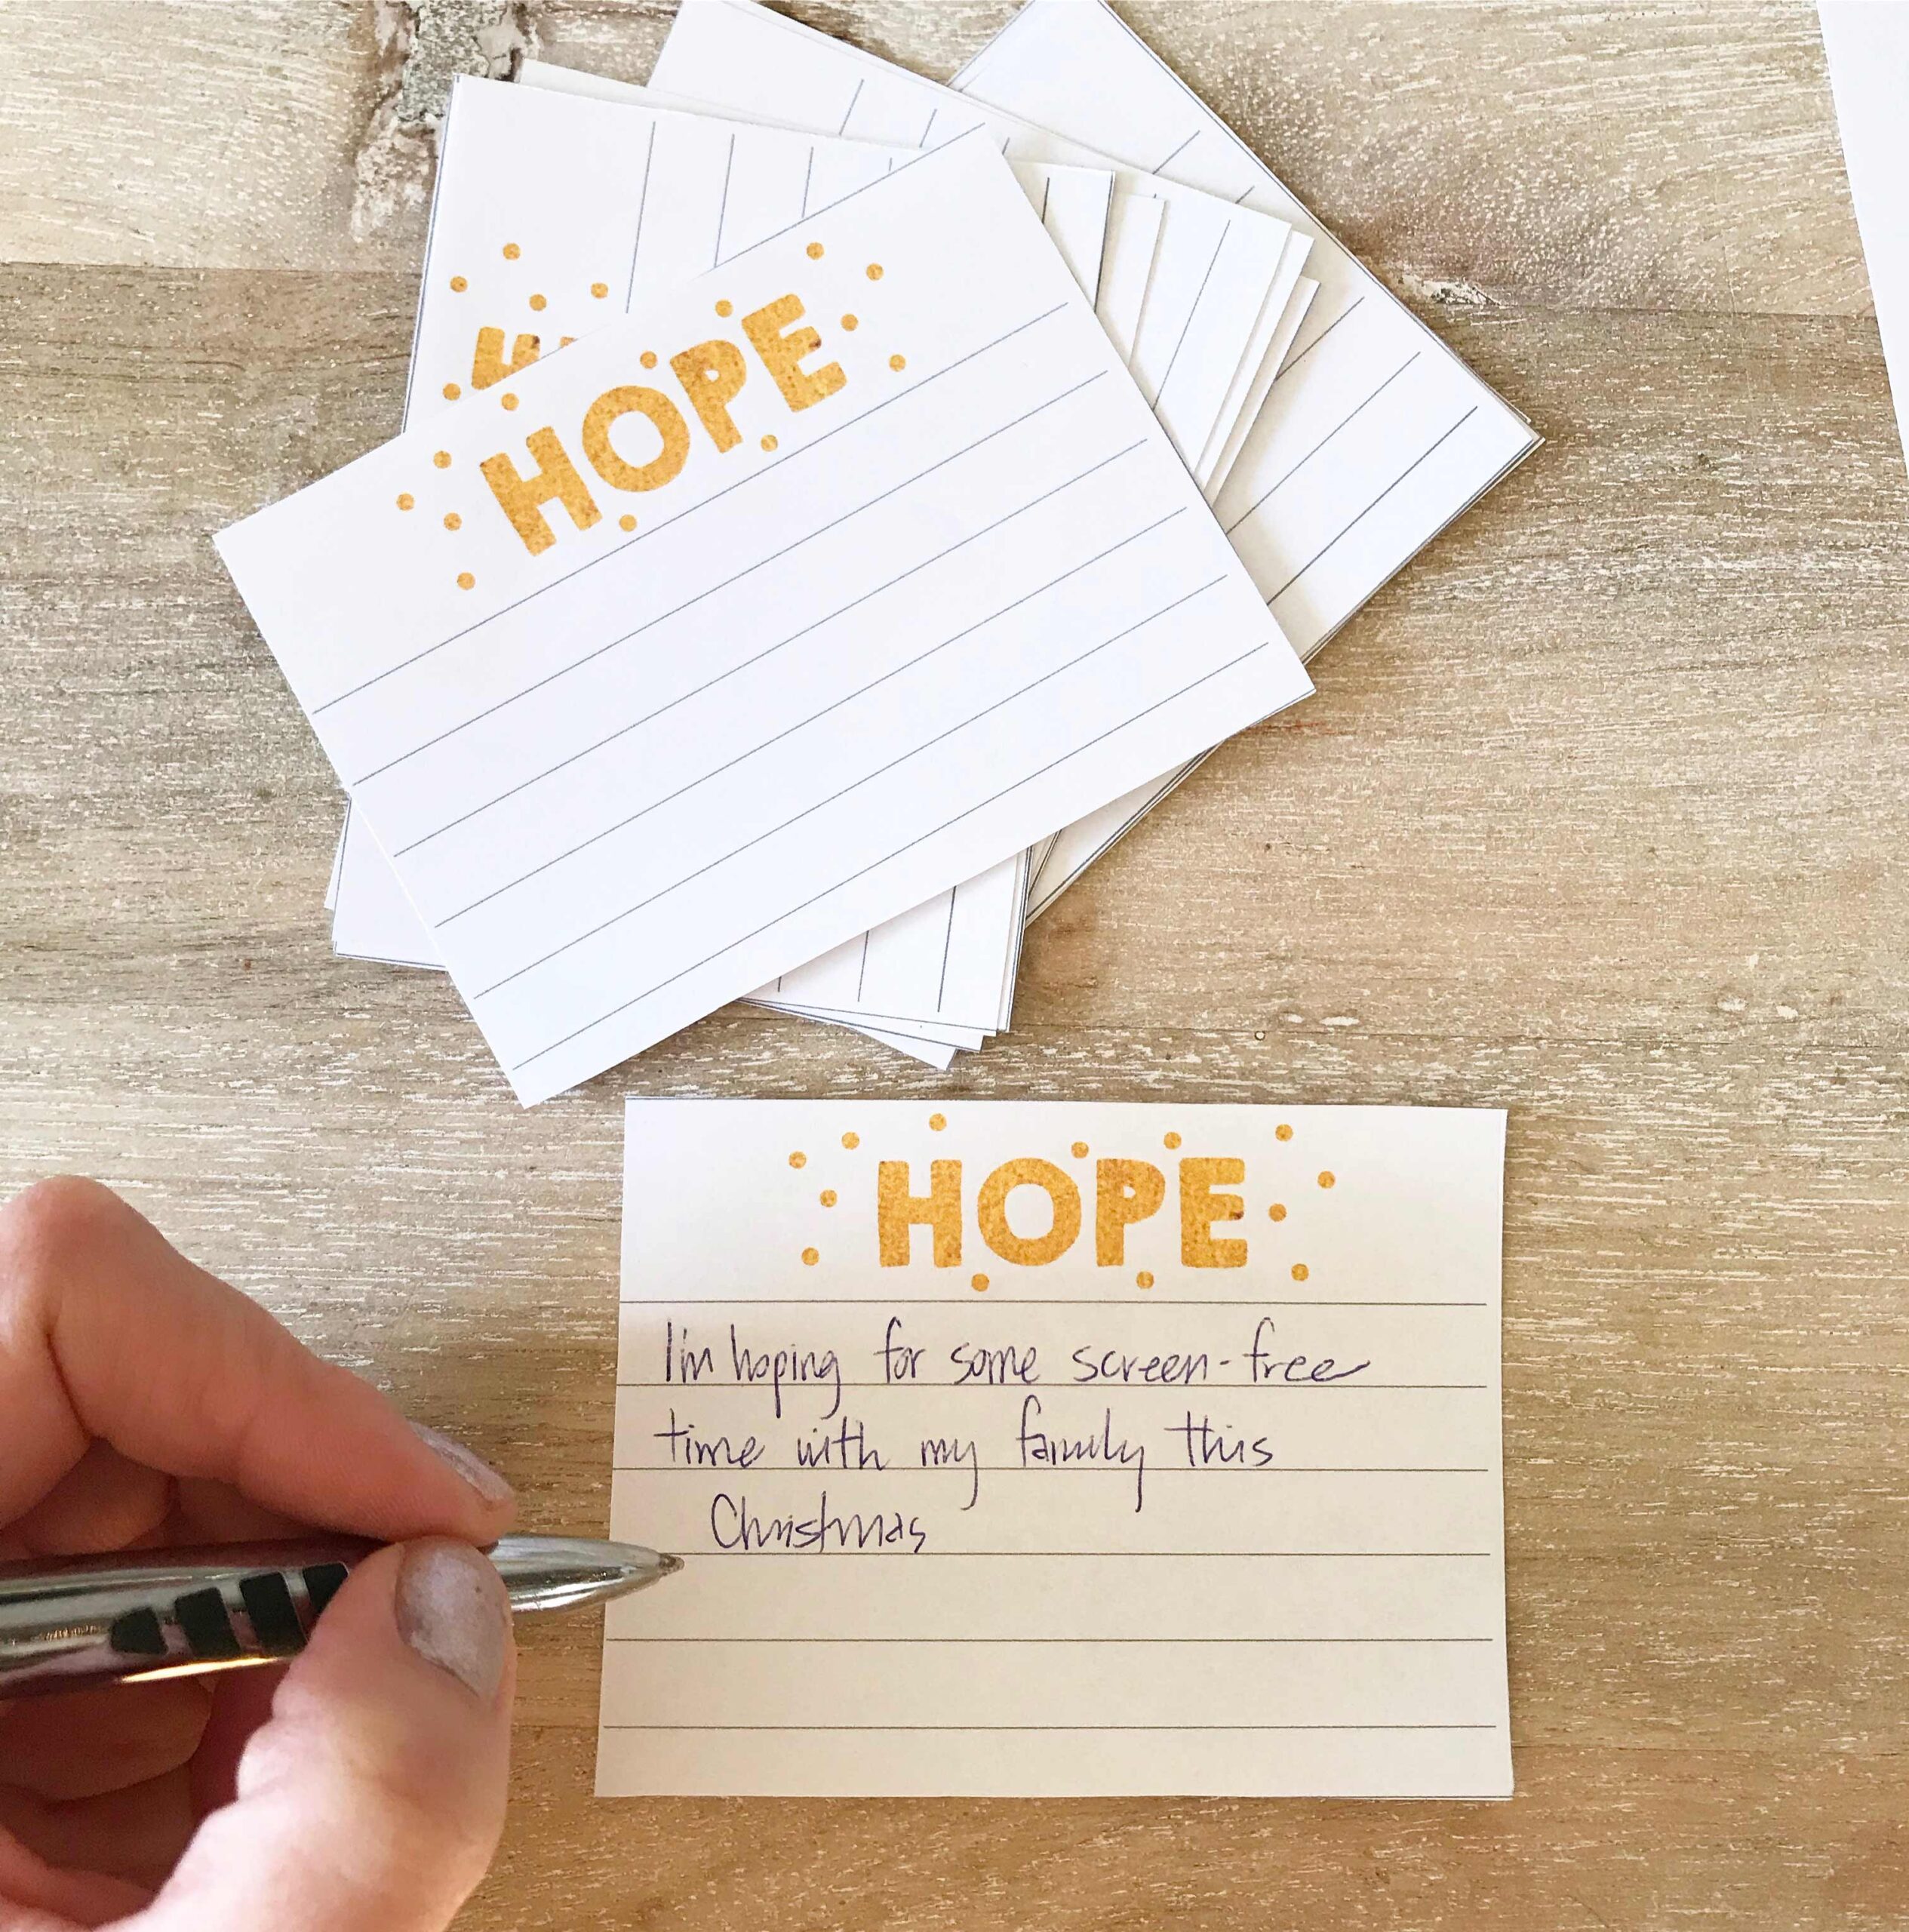 HOPE
HOPE
I'm hoping for some screen-free
time with my family this
Christmas